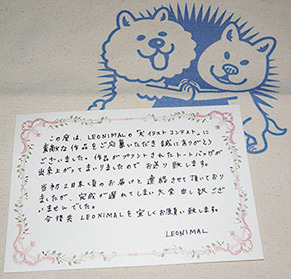 この度は、LEONIMALの「犬イラストコンテスト」に
素敵な作品をご応募いただき誠にありがとう
ございました。作品がプリントされたトートバッグが
出来上がってまいりましたのでお送り致します。
当初2日末頃のお届けと連絡させて頂いており
ましたが、完成が遅れてしまい大変申し訳ござ
いませんでした。
今後共LEONIMALを宜しくお願い致します。
LEONIMAL